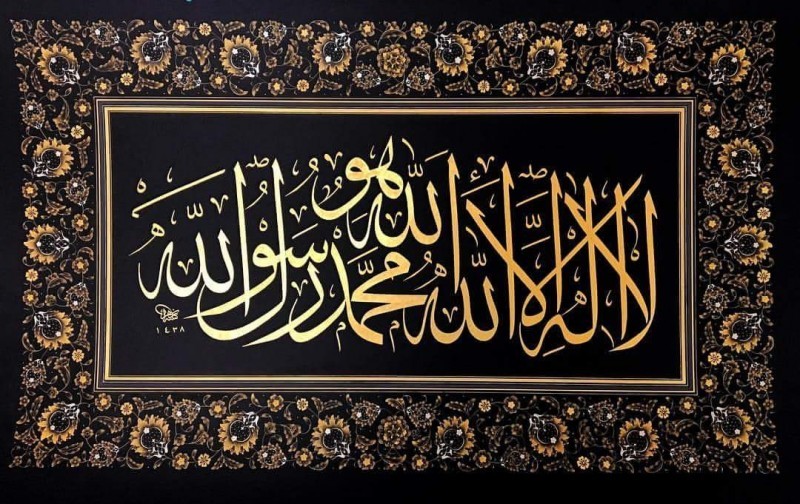 الله هو
لا إله إلا الله محمد رسول الله
١٤٣٨